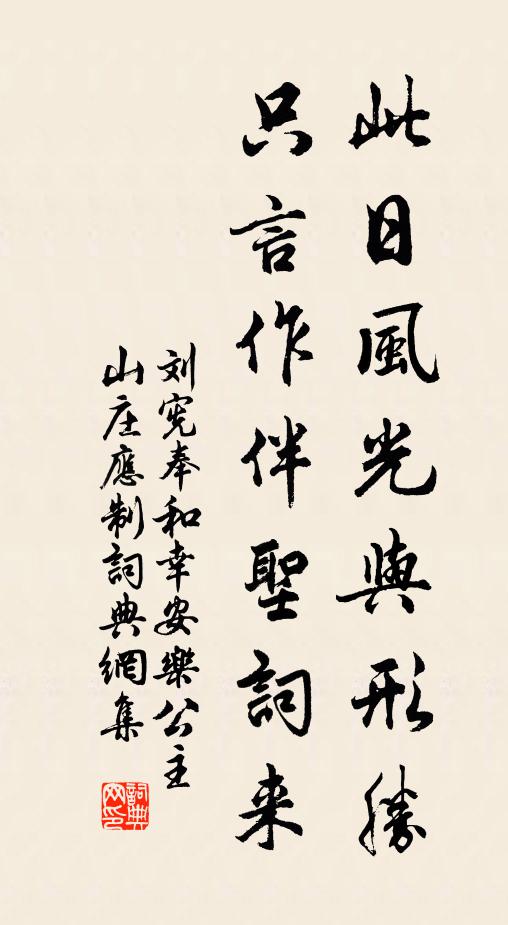 此日風光與形勝
只言作伴聖詞来
刘宪奉和幸安樂公主
山庄應制詞典網集
詞典
网印